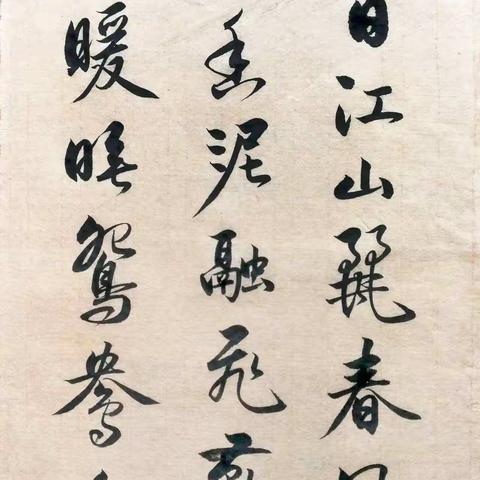 日江山麗春
香泥融飛燕
暖睡鴛鴦